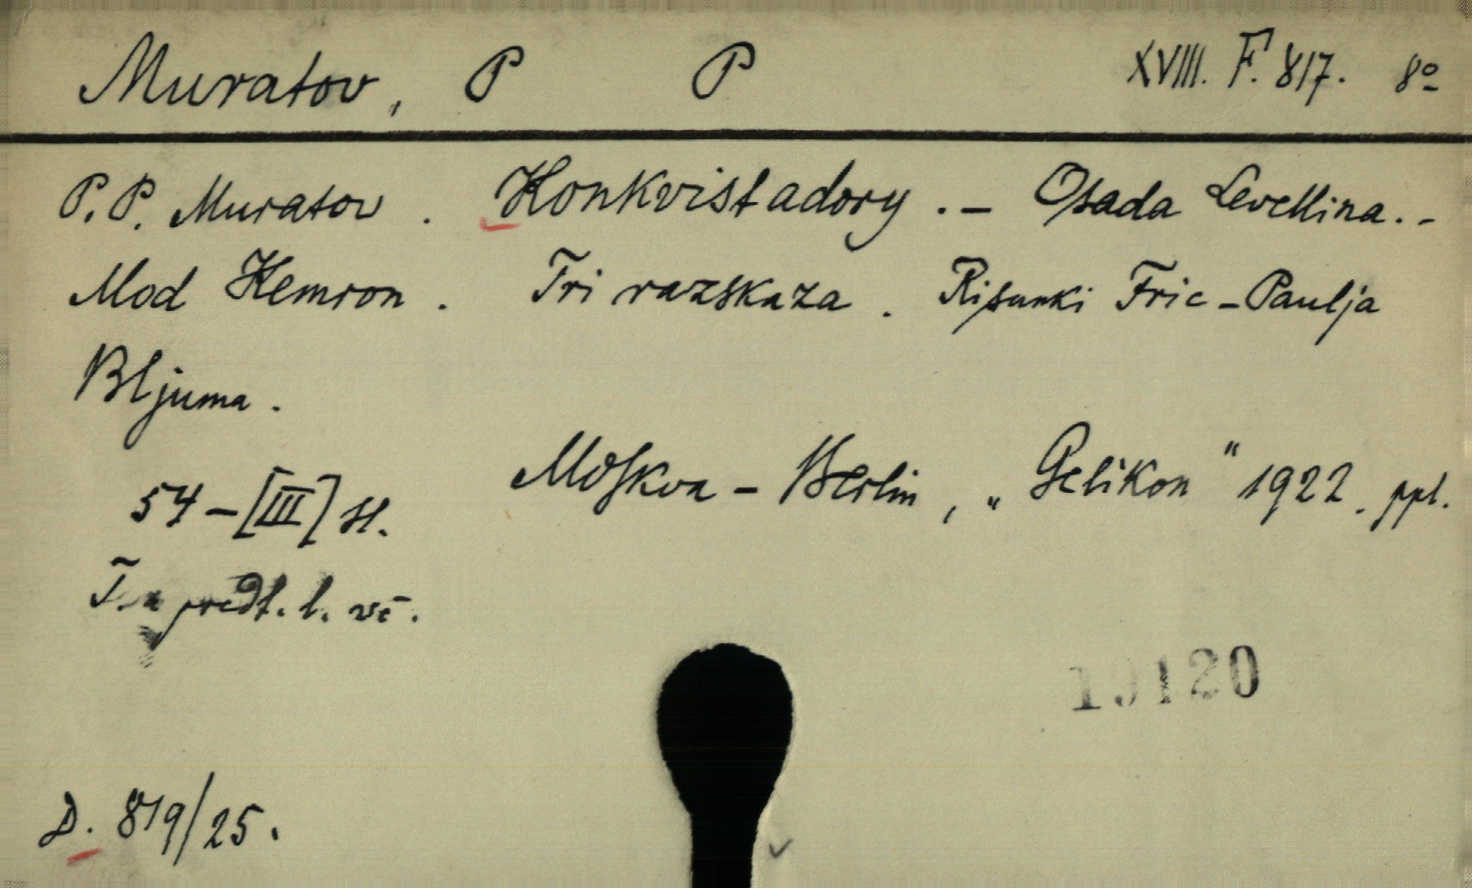 Muratov, P P XVIII. F. 817. 8º
P. P. Muratov. Konkvistadory. — Osada Levellina. —
Mod Kemron. Tri razskaza. Risunki Fric-Paulja
Bljuma.
Moskva – Berlin, „Gelikon" 1922. ppl.
54 – [III] st.
T. a předt. l. vč.
19120
D. 819/25.